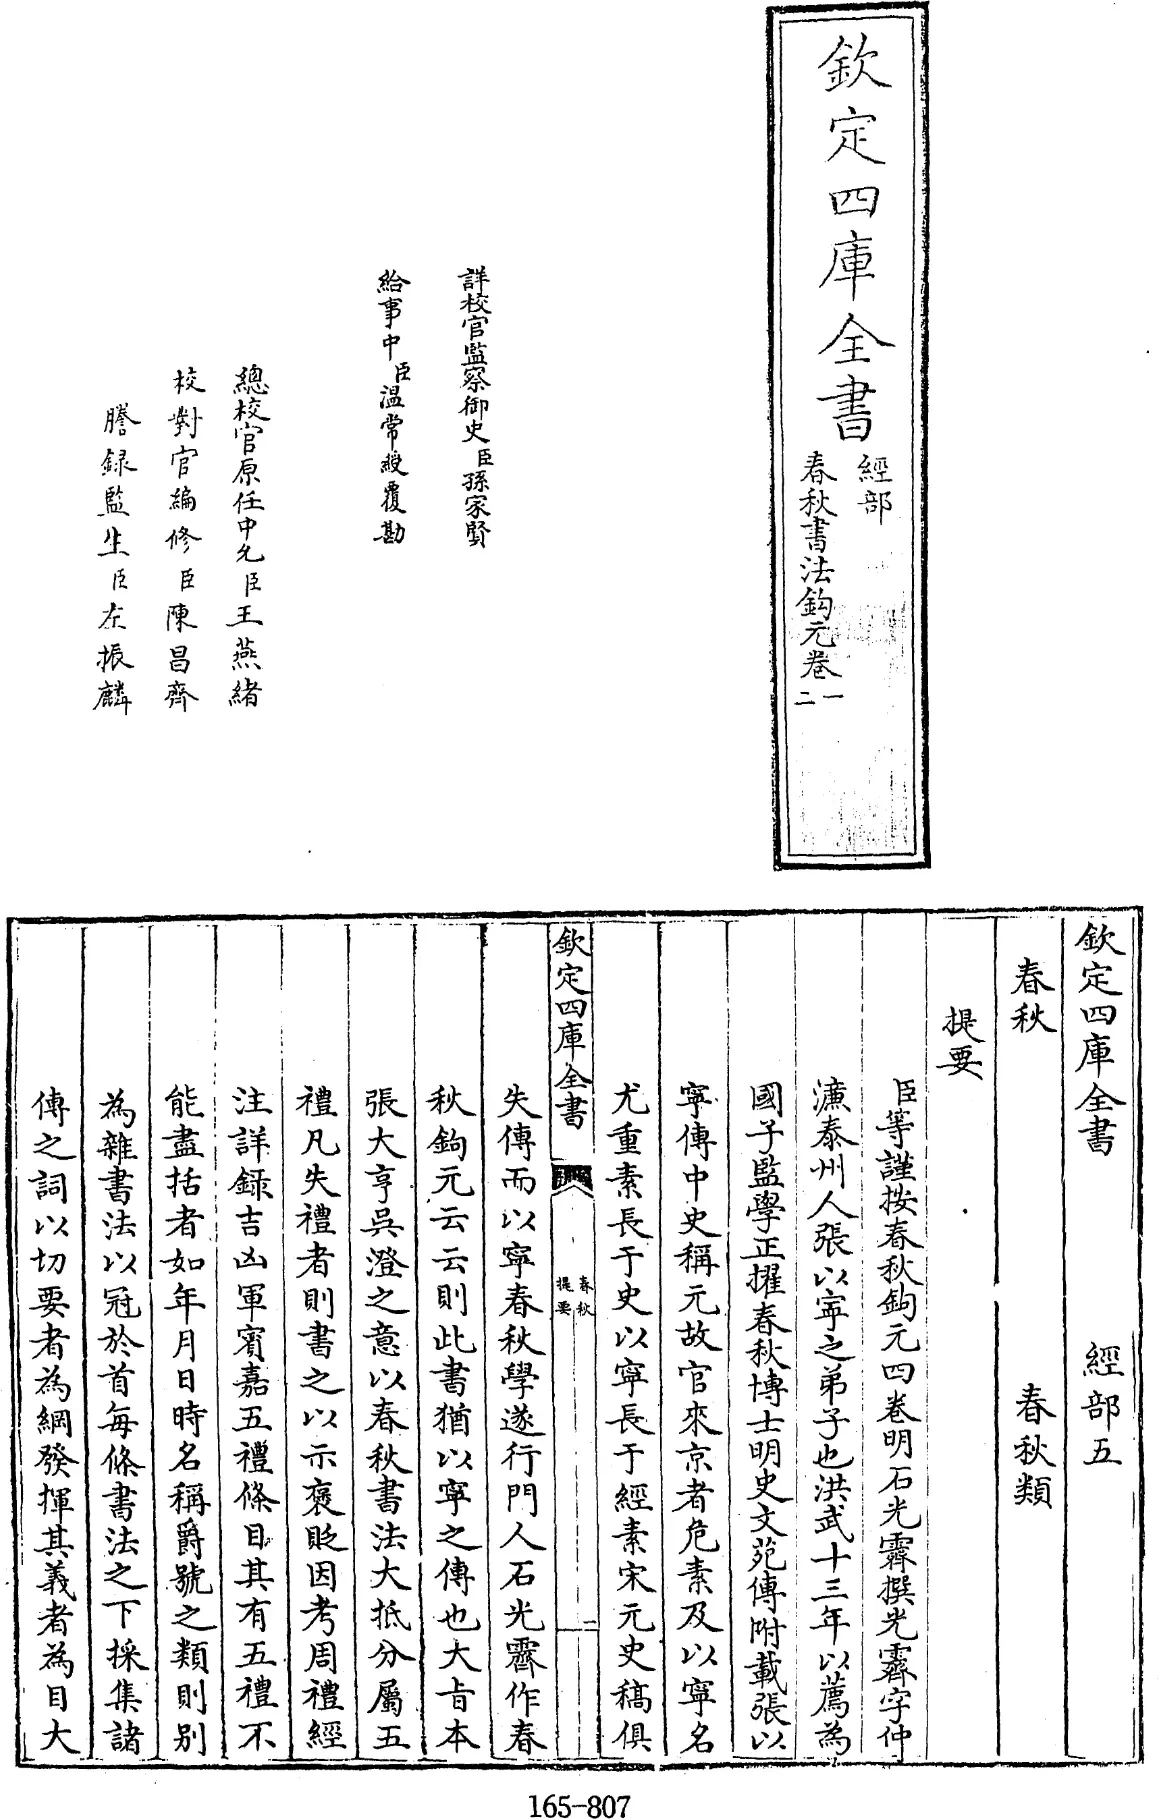 欽定四庫全書
經部
春秋書法鈎元卷一
二
詳校官監察御史臣孫家賢
給事中臣溫常綬覆勘
總校官原任中允臣王燕緒
校對官編修臣陳昌齊
謄録監生臣左振麟
欽定四庫全書 經部五
春秋 春秋類
提要
臣等謹按春秋鉤元四卷明石光霽撰光霽字仲
濂泰州人張以寧之弟子也洪武十三年以薦為
國子監學正擢春秋博士明史文苑傳附載張以
寧傳中史稱元故官來京者危素及以寧名
尤重素長于史以寧長于經素宋元史稿俱
欽定四庫全書
春秋
提要
一
失傳而以寧春秋學遂行門人石光霽作春
秋鉤元云云則此書猶以寧之傳也大旨本
張大亨吳澄之意以春秋書法大抵分屬五
禮凡失禮者則書之以示褒貶因考周禮經
注詳録吉凶軍賓嘉五禮條目其有五禮不
能盡括者如年月日時名稱爵號之類則别
為雜書法以冠於首每條書法之下採集諸
傳之詞以切要者為綱發揮其義者為目大
165-807